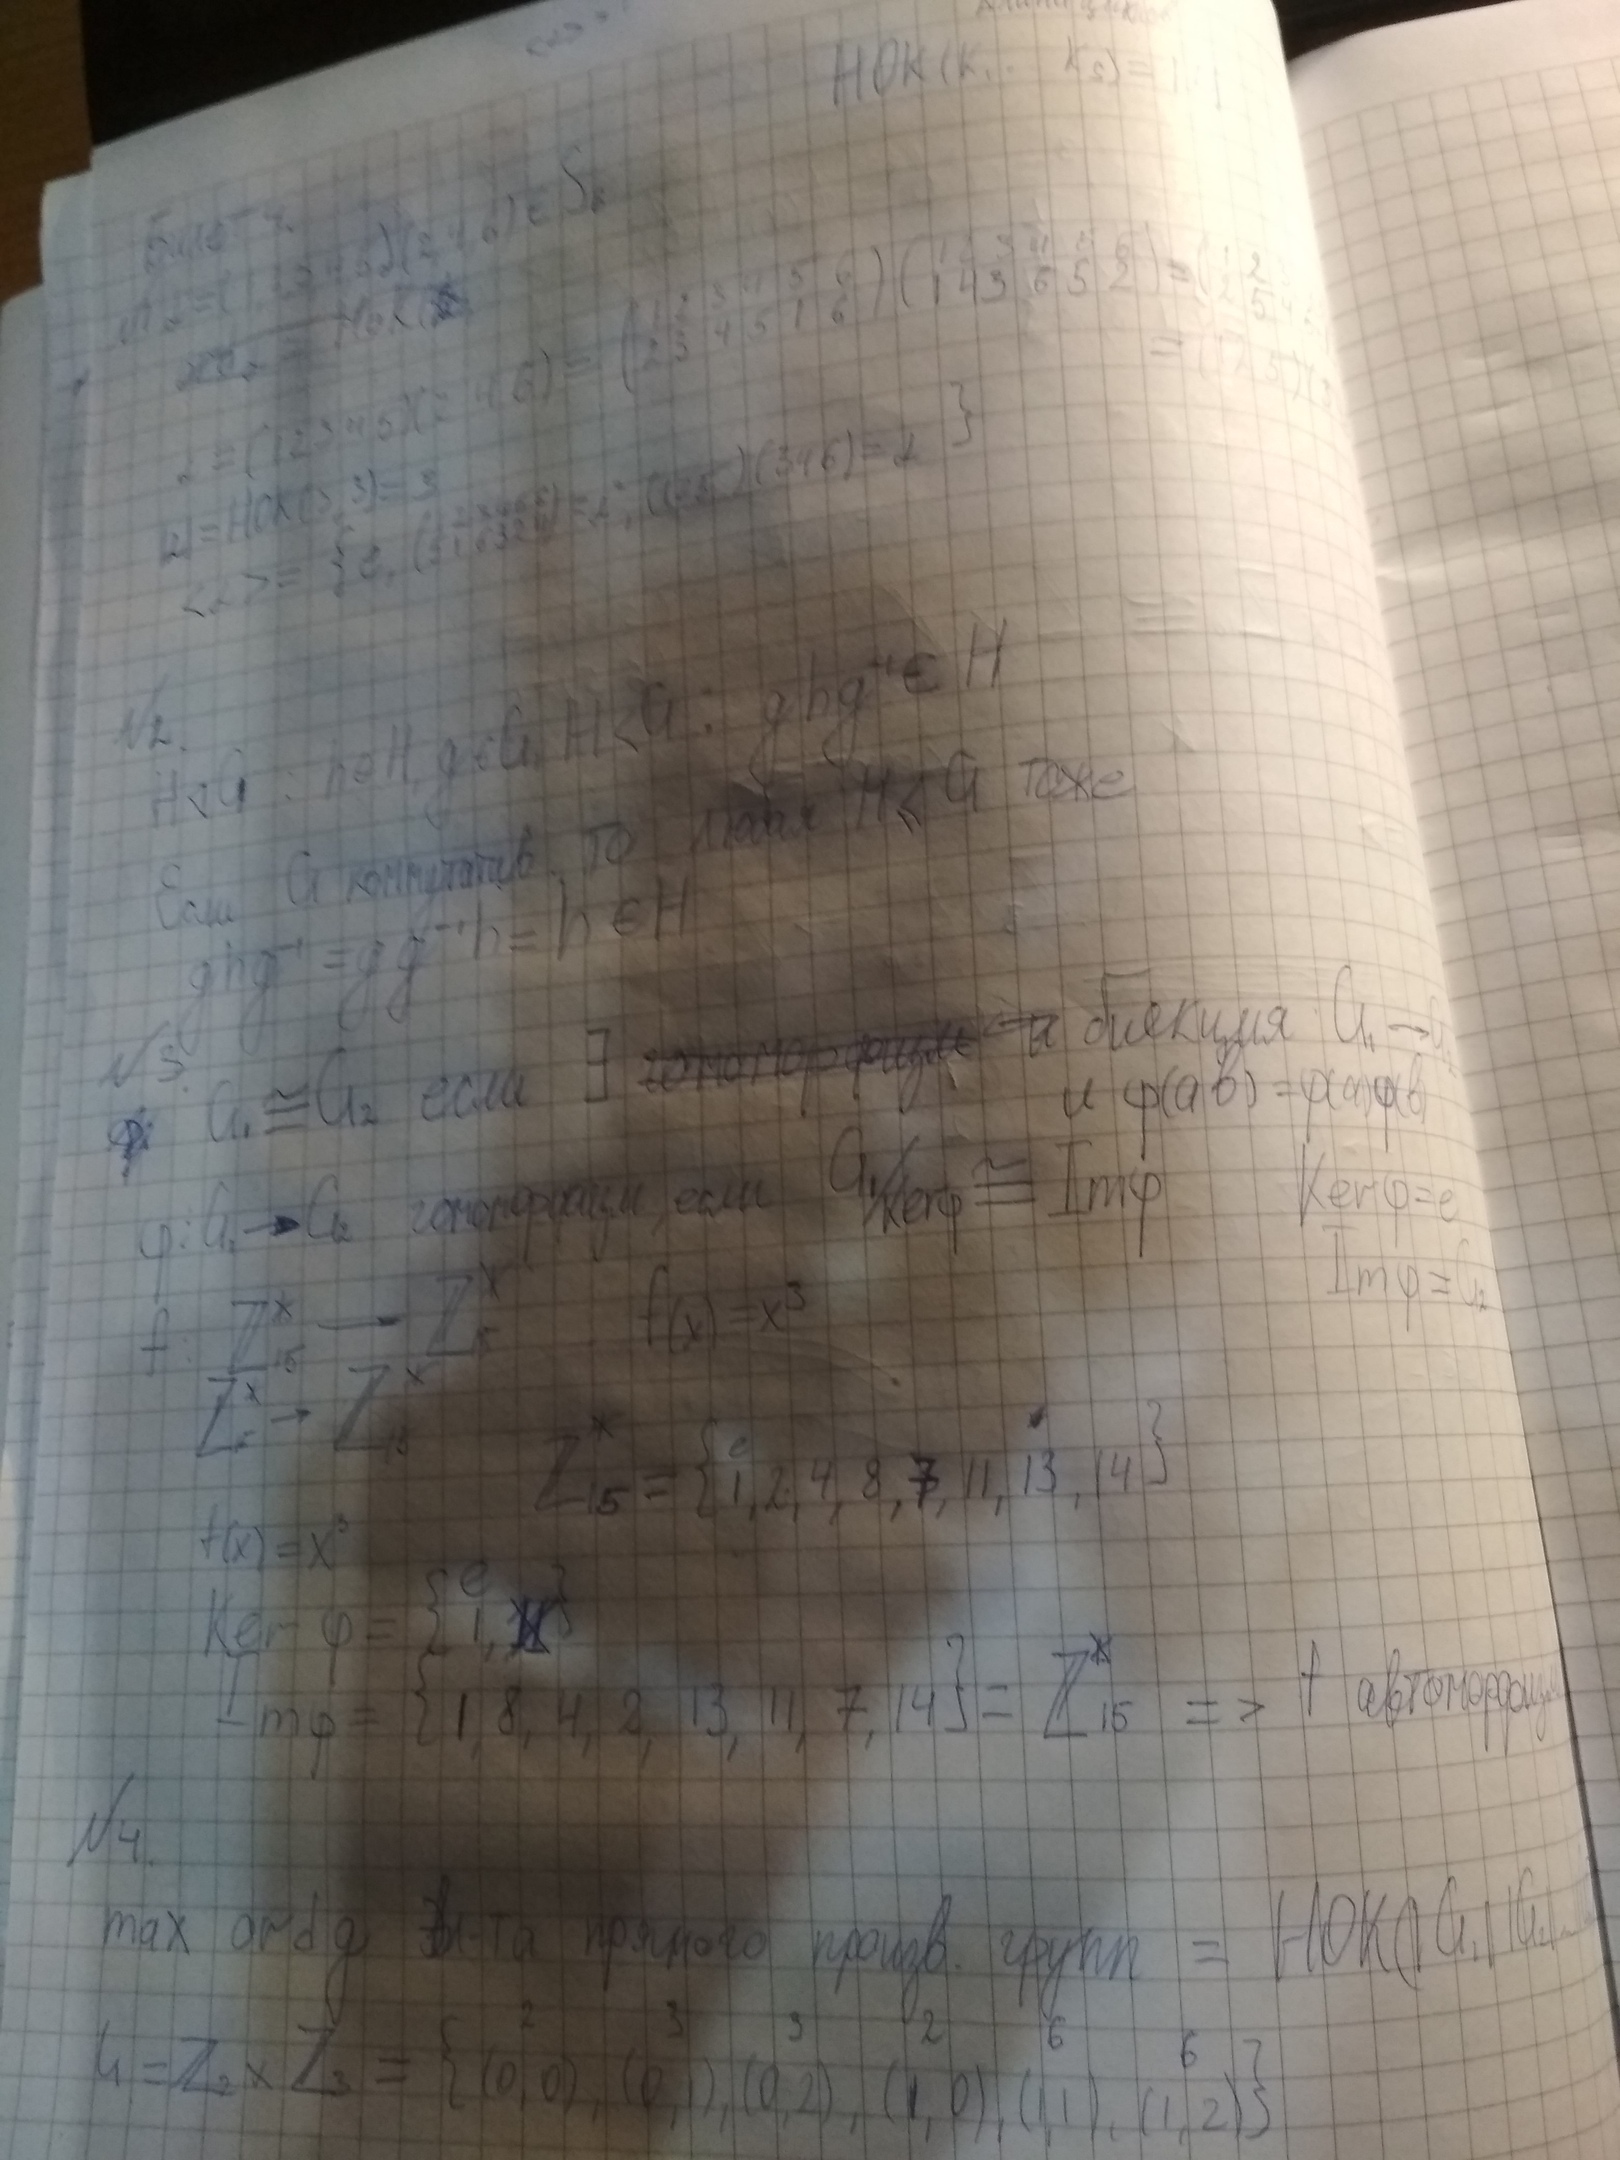 НОК(K₁ .. Kₛ) =
Билет 4.
α = (12345)(246) ∈ S₆
НОК(
α = (12345)(246) = (1 2 3 4 5 6 / 2 3 4 5 1 6)(1 2 3 4 5 6 / 1 4 3 6 5 2) = (1 2 / 2 5
= (125)(3
|α| = НОК(3,3) = 3
<α> = {e, = α², (125)(346) = α }
N2.
H < G : h ∈ H, g ∈ G, H < G : ghg⁻¹ ∈ H
Если G коммутатив. то любая H < G тоже
ghg⁻¹ = gg⁻¹h = h ∈ H
N3.
G₁ ≅ G₂ если ∃ биекция G₁ → G₂
и φ(ab) = φ(a)φ(b)
φ: G₁ → G₂ гомоморфизм, если G₁/Kerφ ≅ Imφ Kerφ = e
Imφ = G₂
f: Z*₁₅ — Z*₁₅ f(x) = x³
Z* → Z*₁₅
Z*₁₅ = {1, 2, 4, 8, 7, 11, 13, 14}
f(x) = x³
Ker φ = {1, }
Imφ = {1, 8, 4, 2, 13, 11, 7, 14} = Z*₁₅ => f автоморфизм
N4.
max ord g эл-та прямого произв. групп = НОК(|G₁||G₂|
G = Z₂ × Z₃ = {(0,0), (0,1), (0,2), (1,0), (1,1), (1,2)}